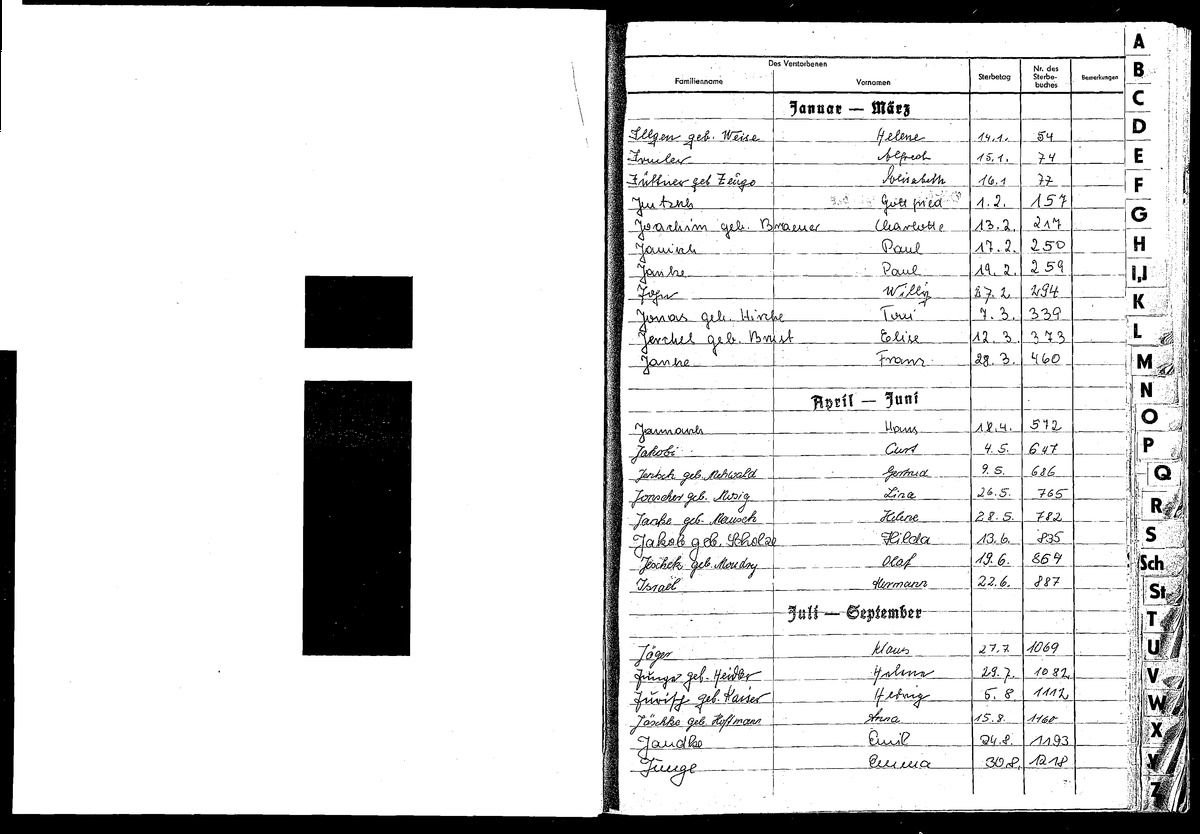 Des Verstorbenen
Familienname Vornamen Sterbetag Nr. des Sterbe-buches Bemerkungen
Januar — März
Illgen geb. Weise Helene 14.1. 54
Alfred 15.1. 74
Züttner geb Elisabeth 16.1 77
Jentzsch Gottfried 1.2. 157
Joachim geb. Braeuer Charlotte 13.2. 217
Janisch Paul 17.2. 250
Janke Paul 19.2. 259
Willy 27.2 294
Jonas geb. Hirche Toni 7.3. 339
Jerchel geb. Brust Elise 12.3. 373
Janke Franz 28.3. 460
April — Juni
Hans 18.4. 572
Jakobi Curt 4.5. 647
Jentsch geb. Gertrud 9.5. 686
Jonscher geb. Musig Lina 26.5. 765
Janke geb. Mausch Helene 28.5. 782
Jakob geb. Scholze Hilda 13.6. 835
Jeschek geb. Olaf 19.6. 864
Israel Hermann 22.6. 887
Juli — September
Jäger Klaus 27.7. 1069
Junge geb. Heidler Helene 29.7. 1082
geb. Kaiser Hedwig 5.8 1112
Jäschke geb. Hoffmann Anna 15.8. 1160
Jandke Emil 24.8. 1193
Junge Emma 30.8. 1218
A
B
C
D
E
F
G
H
I,J
K
L
M
N
O
P
Q
R
S
Sch
St
T
U
V
W
X
Y
Z